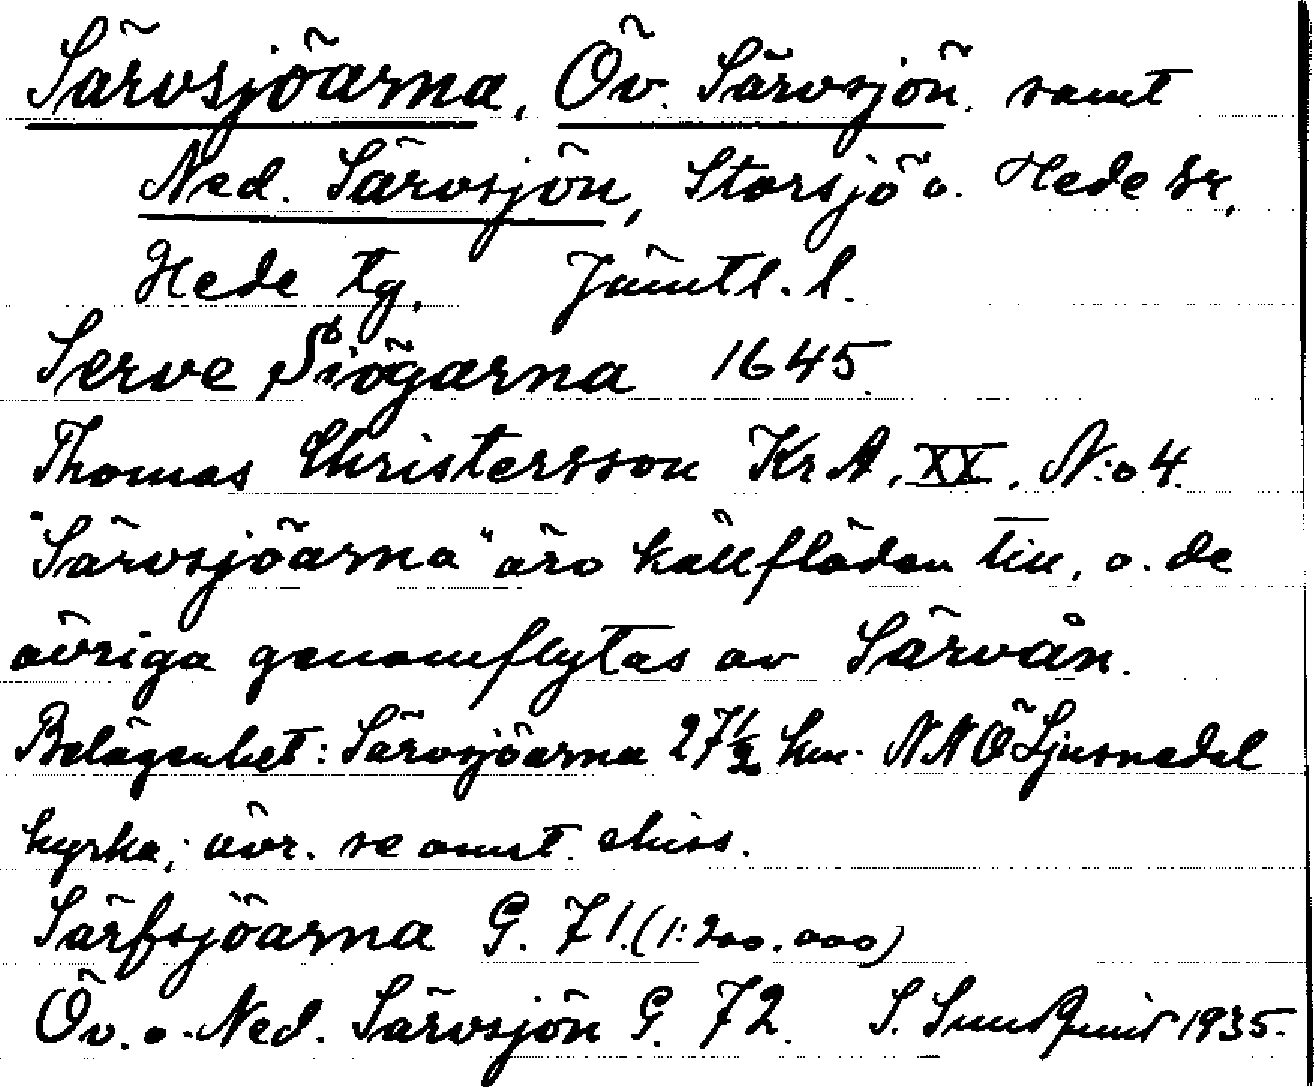 Särvsjöarna, Öv. Särvsjön. samt
Ned. Särvsjön, Storsjö o. Hede sr,
Hede tg. Jämtl. l.
Serve Siögarna 1645.
Thomas Christersson Kr A, XX, N:o 4.
"Särvsjöarna" äro källflöden till, o. de
övriga genomflytas av Särvån.
Belägenhet: Särvsjöarna 27 1/2 km. NNÖ Ljusnedal
kyrka; övr. se omst. skiss.
Särfsjöarna G. 71. (1:200.000)
Öv. o. Ned. Särvsjön G. 72. S. Sundqvist 1935.